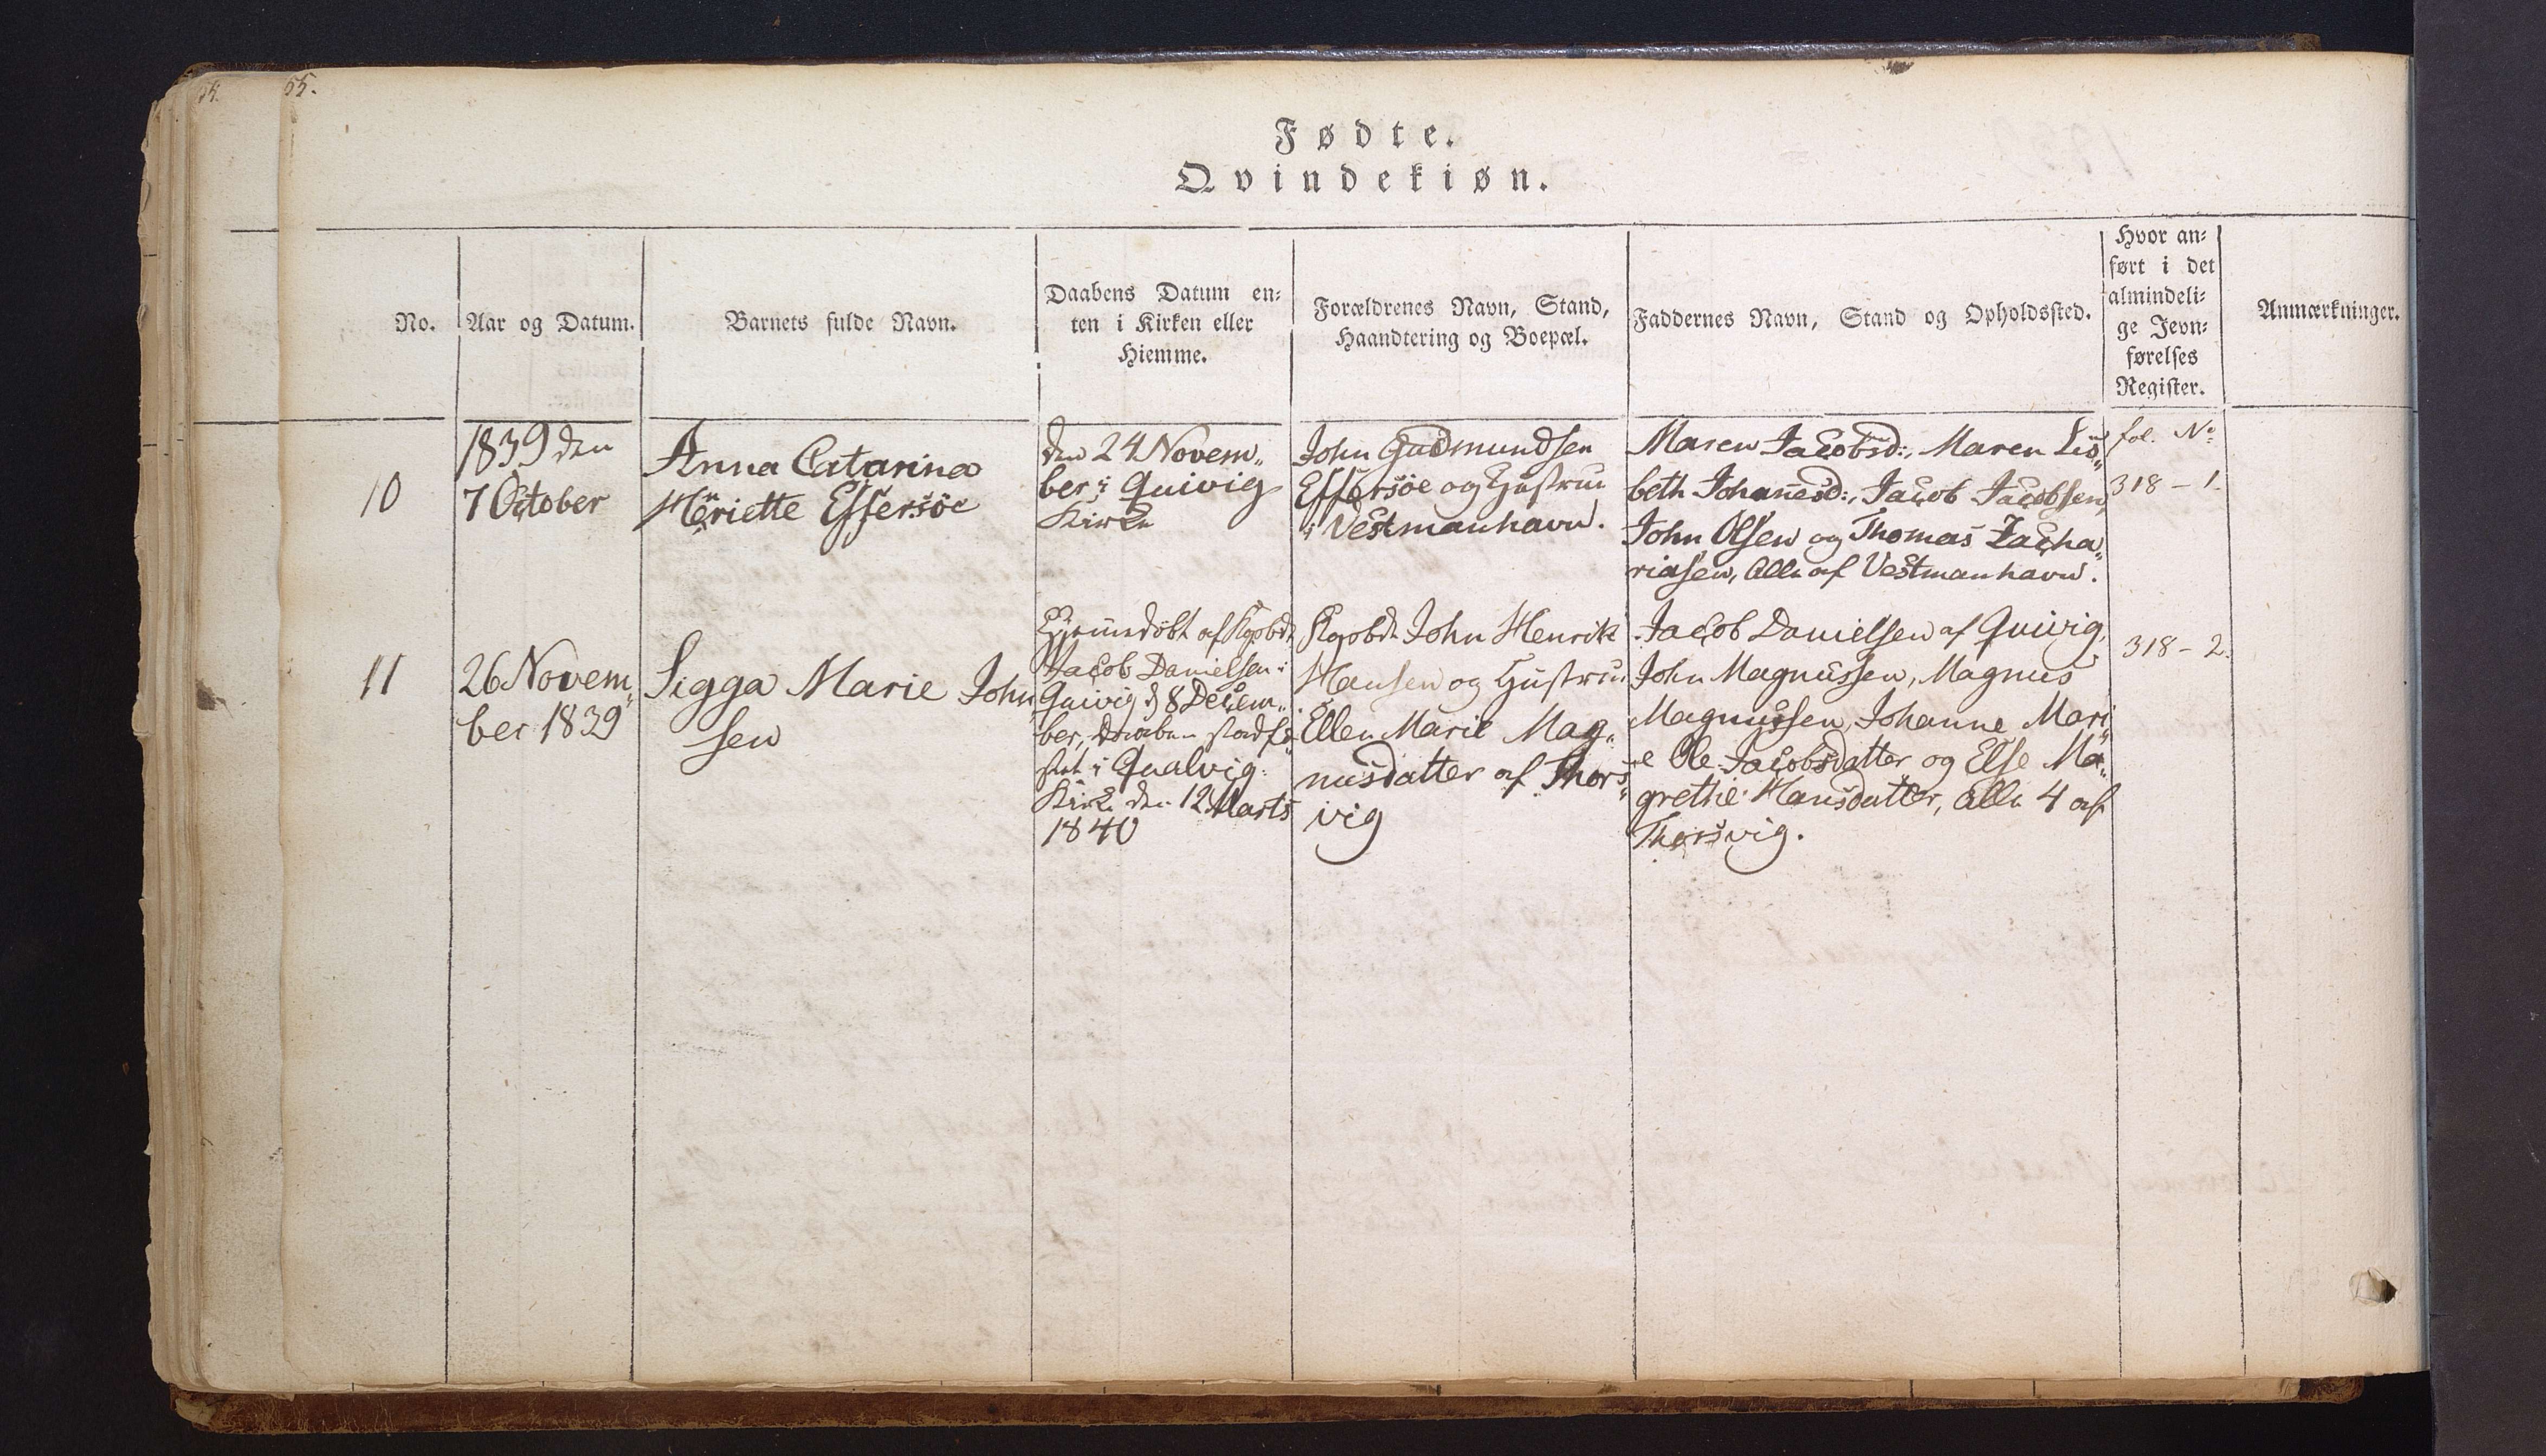 54.
55.
Fødte.
Qvindekiøn.
No.
Aar og Datum.
Barnets fulde Navn.
Daabens Datum en-
ten i Kirken eller
Hiemme.
Forældrenes Navn, Stand,
Haandtering og Boepæl.
Faddernes Navn, Stand og Opholdssted.
Hvor an-
ført i det
almindeli-
ge Jevn-
førelses
Register.
Anmærkninger.
10
1839 den
7 October
Anna Catarina
Heñriette Effersöe
den 24 Novem„
ber i Quivig
Kirke
John Gudmundsen
Effersöe og Hustrue
i Vestmanhavn.
Maren Jacobsd:, Maren Lis„
beth Johañesd:, Jacob Jacobsen,
John Olsen og Thomas Zacha„
riasen, Alle af Vestmanhavn.
fol. No
318 – 1.
11
26 Novem„
ber 1839
Sigga Marie John„
sen
Hjem̃edöbt af Kgsbd:
Jacob Danielsen i
Quivig d 8 Decem„
ber, Daaben stadfæ„
stet i Qvalvig
Kirke den 12 Marts
1840
Kgsbd: John Henrik
Hansen og Hustrue
Ellen Marie Mag„
nusdatter af Thors„
vig
Jacob Danielsen af Quivig,
John Magnussen, Magnus
Magnussen, Johanne Mari„
e Ole Jacobsdatter og Else Ma„
grethe Hansdatter, alle 4 af
Thorsvig.
318 – 2.